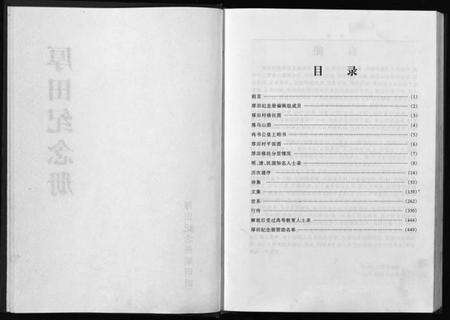 厚田纪念册
目 录
前言 (1)
厚田纪念册编辑组成员 (2)
厚田村模拟图 (3)
落马山图 (4)
尚书公墓土明书 (5)
厚田村平面图 (6)
厚田移居分居情况 (7)
明、清、民国知名人士录 (8)
历次谱序 (14)
诗集 (53)
文集 (139)
世系 (262)
行传 (350)
解放后受过高等教育人士录 (444)
厚田纪念册赞助名单 (449)